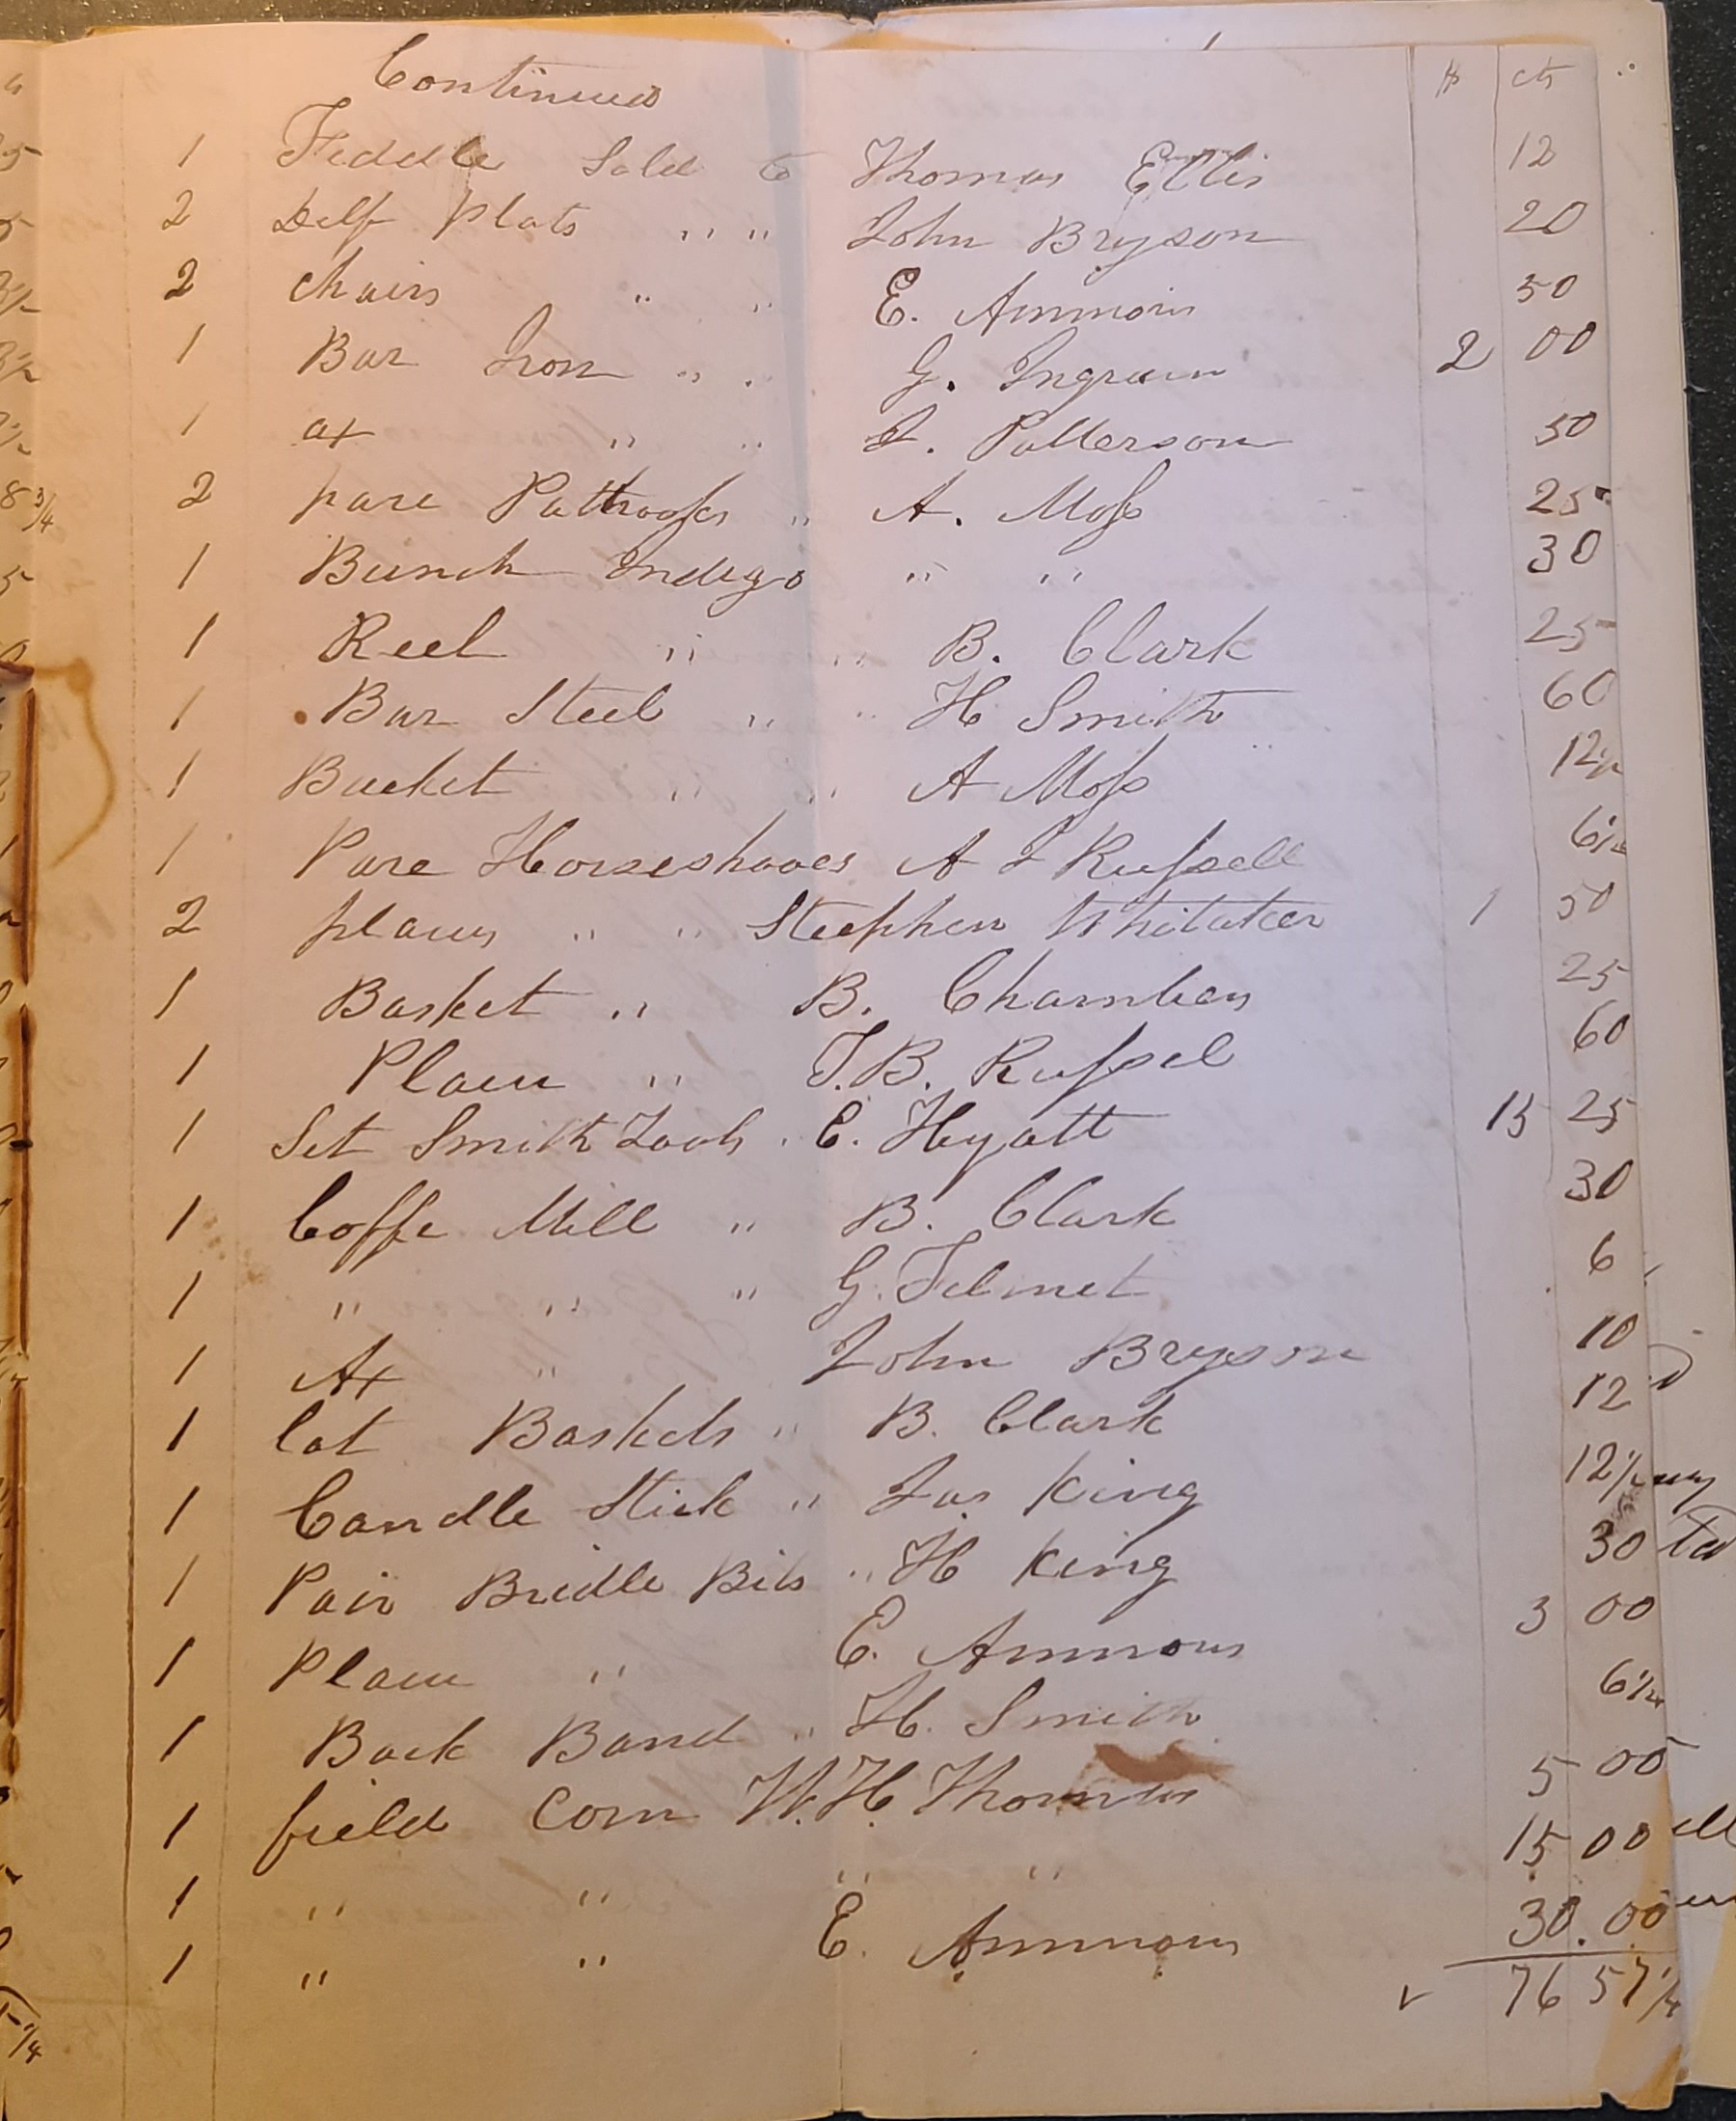 Continued
$ cts
1 Feddle Sold to Thomas Ellis 12
2 Delf Plats " " John Bryson 20
2 chairs " " E. Ammons 50
1 Bar Iron " " G. Ingram 2 00
1 ax " " J. Patterson 50
2 pare Pothooks " A. Moss 25
1 Bunch Indigo " " 30
1 Reel " " B. Clark 25
1 Bar Steel " " H Smith 60
1 Bucket " " A Moss 12½
1 Pare Horseshooes A J Russell 6¼
2 plaws " " Steephen Whitaker 1 50
1 Basket " B. Chambers 25
1 Plaw " T.B. Russel 60
1 Set Smith Tools " E. Hyatt 15 25
1 Coffe Mill " B. Clark 30
1 " " " G. Telmet 6
1 Ax " John Bryson 10
1 lot Baskets " B. Clark 12
1 Candle Stick " Jas King 12½
1 Pair Bridle Bits " H King 30
1 Plaw " E. Ammons 3 00
1 Back Band " H. Smith 6¼
1 field Corn W.H. Thomas 5 00
1 " " " " 15 00
1 " " E. Ammons 30.00
76 57¼